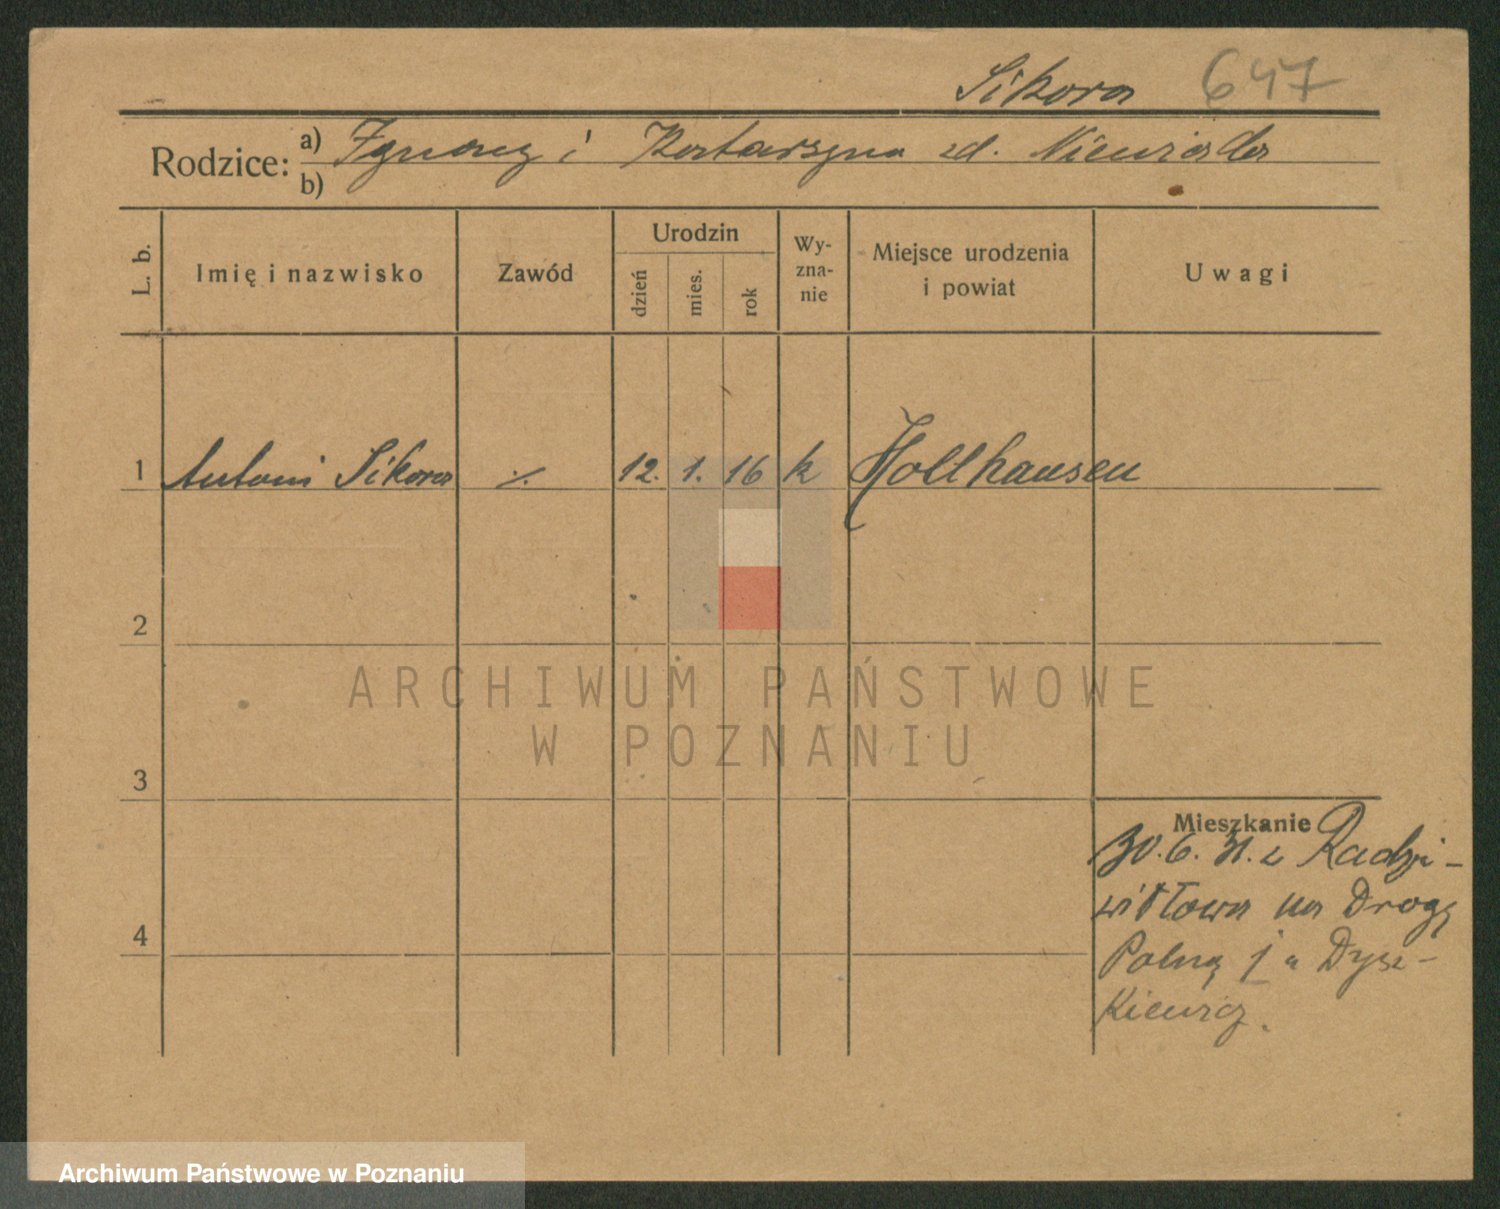 Sikora 647
Rodzice: a) Ignacy i Katarzyna zd. Niewiada
b)
L. b.
Imię i nazwisko
Zawód
Urodzin
dzień
mies.
rok
Wy-
zna-
nie
Miejsce urodzenia
i powiat
Uwagi
1 Antoni Sikora ·/. 12. 1. 16 k Hollhausen
2
3
4
Mieszkanie
30. 6. 31. z Radzi-
wiłłowa na Drogę
Polną 1 a Dysz-
kiewicz.
ARCHIWUM PAŃSTWOWE
W POZNANIU
Archiwum Państwowe w Poznaniu